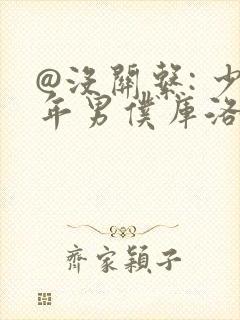 @沒關繫: 少
年男僕庫洛
齊家穎子